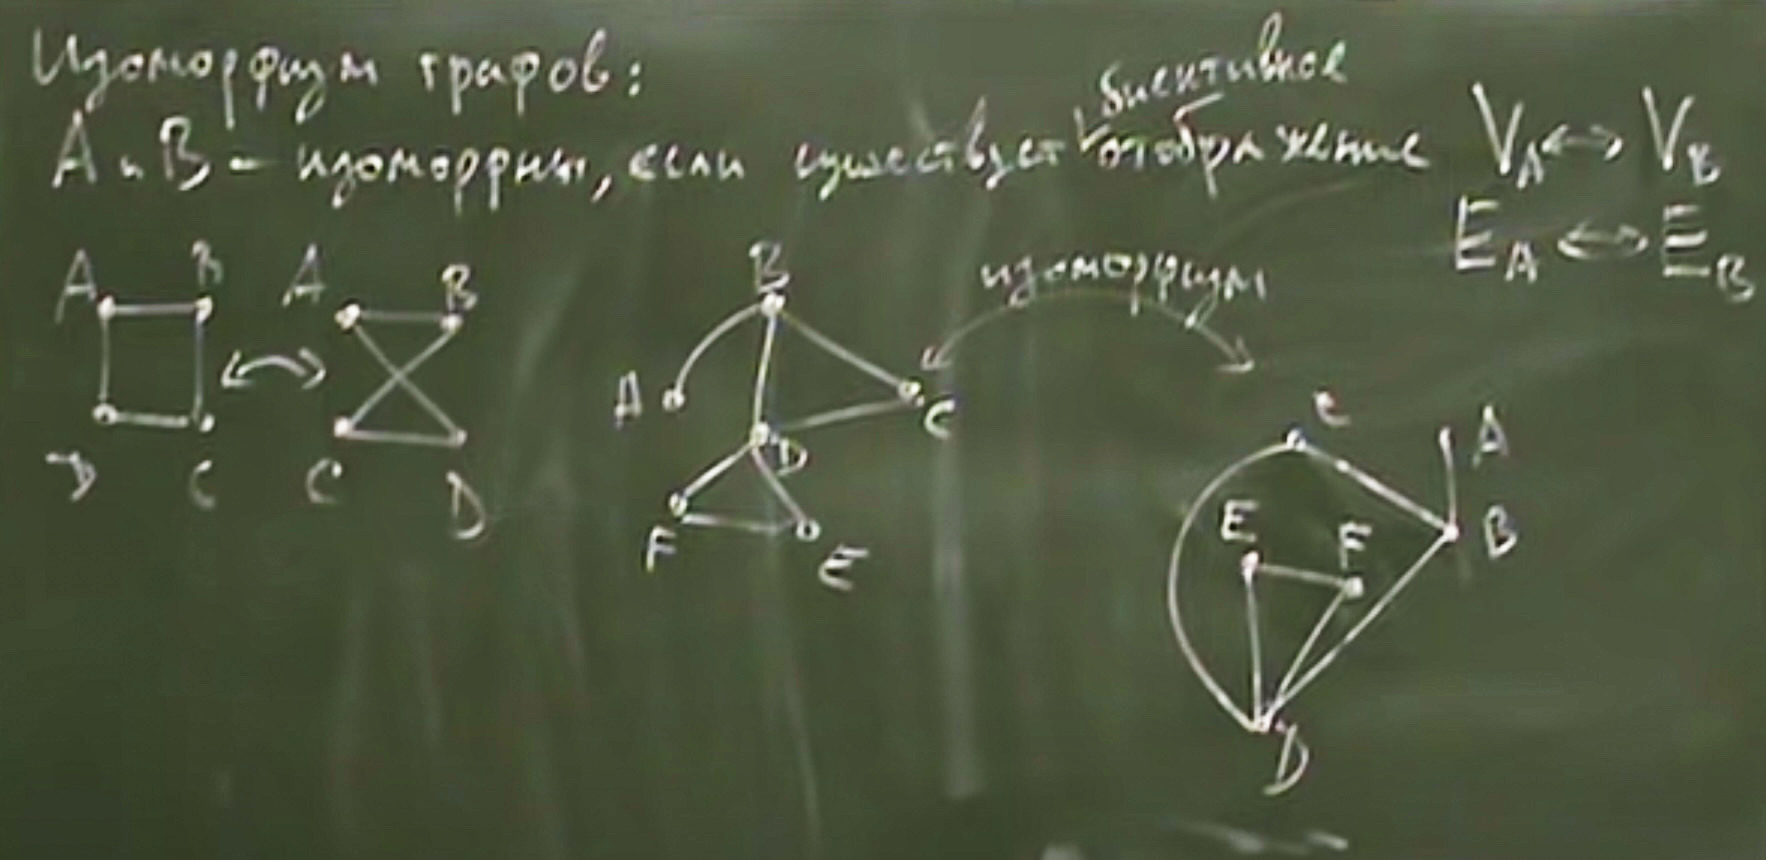 Изоморфизм графов:
биективное
A и B - изоморфны, если существует отображение V_A ↔ V_B
E_A ↔ E_B
изоморфизм
A B
D C
A B
C D
B
A
C
D
F
E
C
A
E
F
B
D